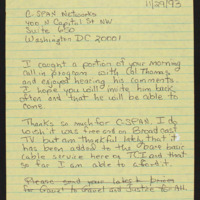 11/29/93
C-SPAN Networks
400 N Capitol St NW
Suite 650
Washington DC 20001
I caught a portion of your morning
call in program with Cal Thomas,
and enjoyed hearing his comments.
I hope you will invite him back
often and that he will be able to
come.
Thanks so much for C-SPAN. I do
wish it was free and on Broadcast
TV. but am thankful lately that it
has been added to the bare basic
cable service here on TCI and that
so far I am able to afford it.
Please send your latest
for